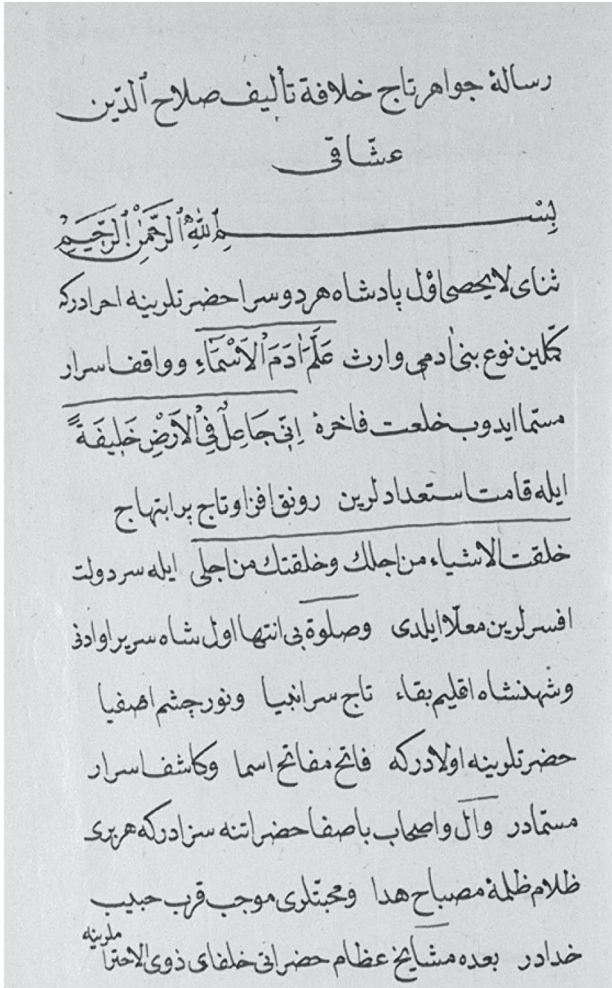 رسالۀ جواهر تاج خلافة تأليف صلاح الدّين
عشّاقى
بِسْمِ اللّٰهِ الرَّحْمٰنِ الرَّحِيمِ
ثناى لا يحصى اول پادشاه هر دوسرا حضرتلرينه احرادركه
كمّلين نوع بنى آدمى وارث عَلَّمَ اٰدَمَ الْاَسْمَٓاءِ و واقف اسرار
مستما ايدوب خلعت فاخرۀ اِنّى جَاعِلٌ فِى الْاَرْضِ خَلِيفَةً
ايله قامت استعدادلرين رونق افزا و تاج پر ابتهاج
خلقت الاشياء من اجلك وخلقتك من اجلى ايله سر دولت
افسرلرين معلّا ايلدى وصلوة بى انتها اول شاه سرير او ادنى
وشهنشاه اقليم بقاء تاج سر انبيا ونور چشم اصفيا
حضرتلرينه اولادركه فاتح مفاتح اسما وكاشف اسرار
مستمادر وآل واصحاب باصفا حضراتنه سزادركه هر برى
ظلام ظلمة مصباح هدا ومحبتلرى موجب قرب حبيب
خدادر بعده مشايخ عظام حضراتى خلفاى ذوى الاحترا
ملرينه